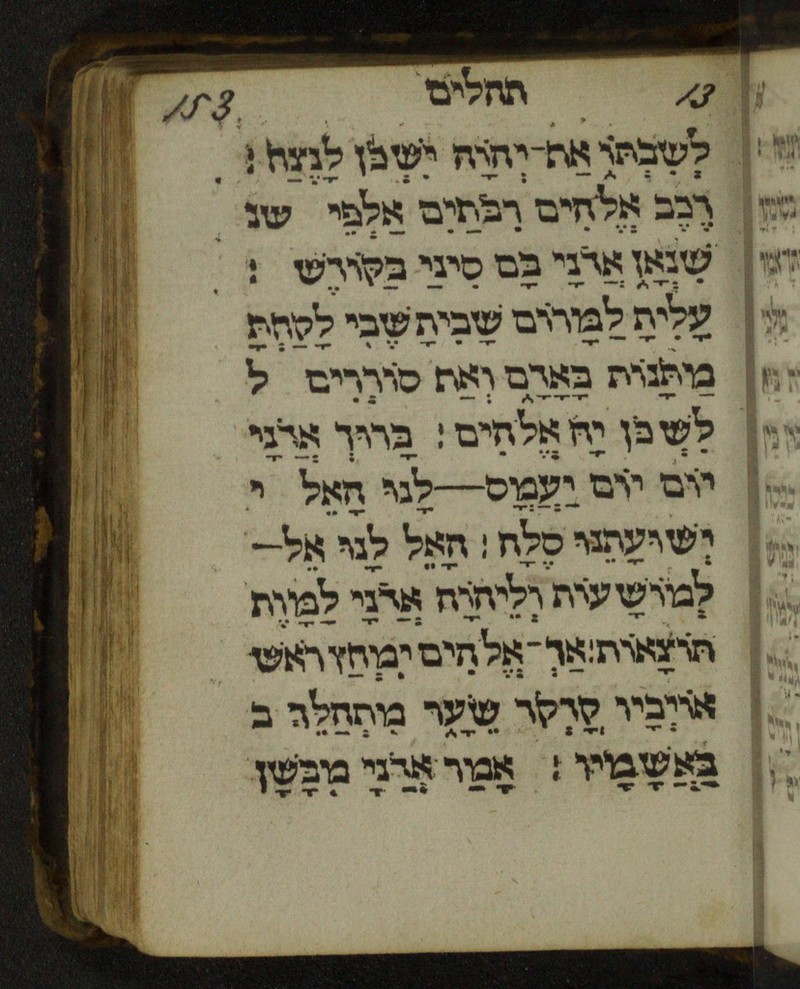 153. תהלים 13
לְשִׁבְתּוֹ אַף־יְהֹוָה יִשְׁכֹּן לָנֶצַח׃
רֶכֶב אֱלֹהִים רִבֹּתַיִם אַלְפֵי שנ
שִׁנְאָן אֲדֹנָי בָם סִינַי בַּקּוֹדֶשׁ׃
עָלִיתָ לַמָּרוֹם שָׁבִיתָ שֶּׁבִי לָקַחְתָּ
מַתָּנוֹת בָּאָדָם וְאַף סוֹרְרִים ל
לִשְׁכֹּן יָהּ אֱלֹהִים׃ בָּרוּךְ אֲדֹנָי
יוֹם יוֹם יַעֲמָס—לָנוּ הָאֵל י
יְשׁוּעָתֵנוּ סֶלָה׃ הָאֵל לָנוּ אֵל—
לְמוֹשָׁעוֹת וְלֵיהֹוִה אֲדֹנָי לַמָּוֶת
תּוֹצָאוֹת׃ אַךְ־אֱלֹהִים יִמְחַץ רֹאשׁ
אוֹיְבָיו קָדְקֹד שֵׂעָר מִתְהַלֵּךְ ב
בַּאֲשָׁמָיו׃ אָמַר אֲדֹנָי מִבָּשָׁן